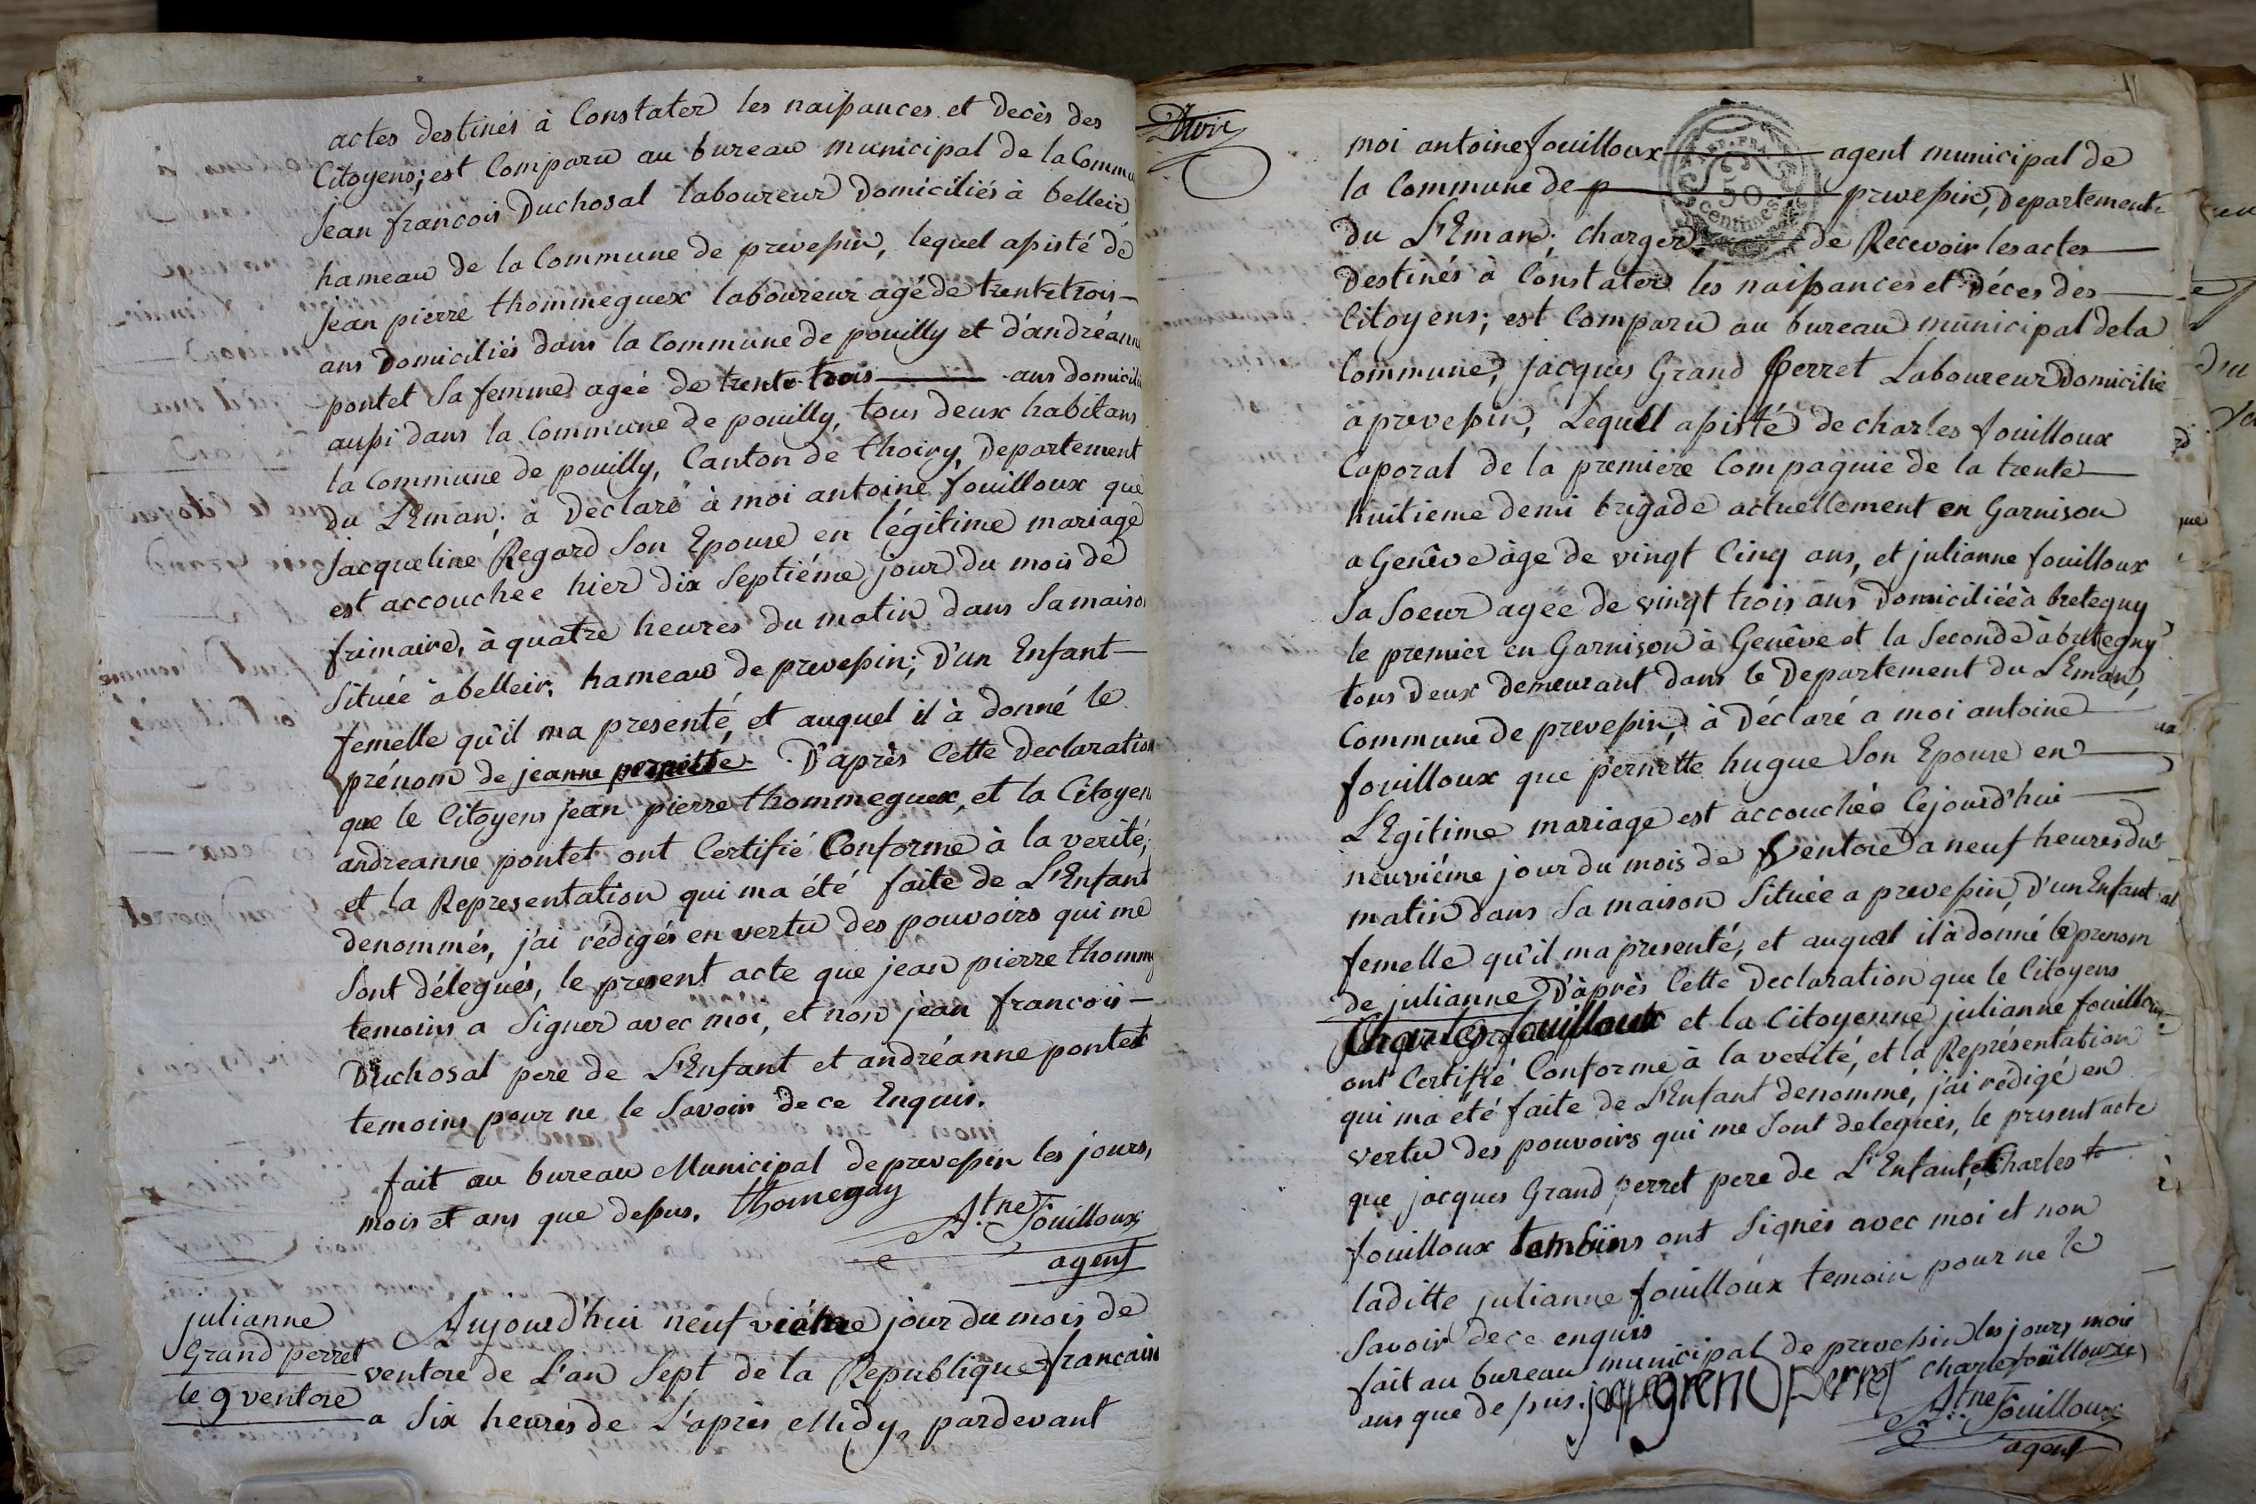 actes destinés à Constater les naissances et decès des
Citoyens; est Comparu au bureau municipal de la Commu
Jean francois Duchosal laboureur Domiciliés à belleir
hameau de la Commune de prevessin, lequel assisté de
Jean pierre thommeguex laboureur agé de trente trois
ans Domiciliés dans la Commune de pouilly et d'andréann
pontet sa femme agée de trente trois ans domicili
aussi dans la Commune de pouilly, tous deux habitans
la Commune de pouilly, Canton de thoiry, Departement
du L'Eman; à Declaré à moi antoine fouilloux que
Jacqueline Regard son Epouse en légitime mariage
est accouchée hier dix septiéme jour du mois de
frimaire, à quatre heures du matin dans sa maison
située à belleir, hameau de prevessin; D'un Enfant
femelle qu'il ma presenté, et auquel il à donné le
prénom de jeanne pernette. D'après Cette Declaration
que le Citoyens Jean pierre thommeguex, et la Citoyen
andreanne pontet ont Certifié Conforme à la verité,
et la Representation qui ma été faite de L'Enfant
denommés, j'ai rédigés en vertu des pouvoirs qui me
sont délegués, le present acte que jean pierre thomme
temoins a Signer avec moi, et non jean francois
Duchosal pere de L'Enfant et andréanne pontet
temoins pour ne le Savoir de ce Enquis.
fait au bureau Municipal de prevessin les jours,
mois et ans que dessus. thomegay
Atne fouilloux
agent
julianne
Grand perret
le 9 ventose
Aujourd'hui neuf viéme jour du mois de
ventose de L'an Sept de la Republique francain
a Six heures de L'après Midy, pardevant
moi antoine fouilloux agent municipal de
REP. FRA.
50
centimes
la Commune de p prevessin, Departement
du L'Eman; charger de Recevoir les actes
Destinés à Constater les naissances et Déces des
Citoyens; est Comparu au bureau municipal de la
Commune, jacques Grand perret Laboureur Domicilié
à prevessin, Lequel assisté de charles fouilloux
Caporal de la premiere Compagnie de la trente
huitieme demi brigade actuellement en Garnison
a Genêve àge de vingt Cinq ans, et julianne fouilloux
sa Soeur agée de vingt trois ans Domiciliée à bretegny
le premier en Garnison à Genêve et la Seconde à bretegny
tous Deux demeurant dans le Departement du L'Eman,
Commune de prevessin, à Déclaré a moi antoine
fouilloux que pernette hugue Son Epouse en
L'Egitime mariage est accouchée Cejourd'hui
neuviéme jour du mois de Ventose a neuf heures du
matin dans sa maison Située a prevessin, D'un Enfant
femelle qu'il ma presenté, et auquel il à donné le prenom
de julianne, D'après Cette Declaration que le Citoyens
Charles fouilloux et la Citoyenne julianne fouilloux
ont Certifié Conforme à la verité, et la Représentation
qui ma été faite de L'Enfant denommé, j'ai rédigé en
vertu des pouvoirs qui me Sont delegués, le present acte
que jacques Grand perret pere de L'Enfant, Charles
fouilloux temoins ont Signés avec moi et non
laditte julianne fouilloux temoin pour ne le
Savoir de ce enquis
fait au bureau municipal de prevessin les jours mois
ans que dessus. jaque grend perret charle fouilloux
Atne fouilloux
agent